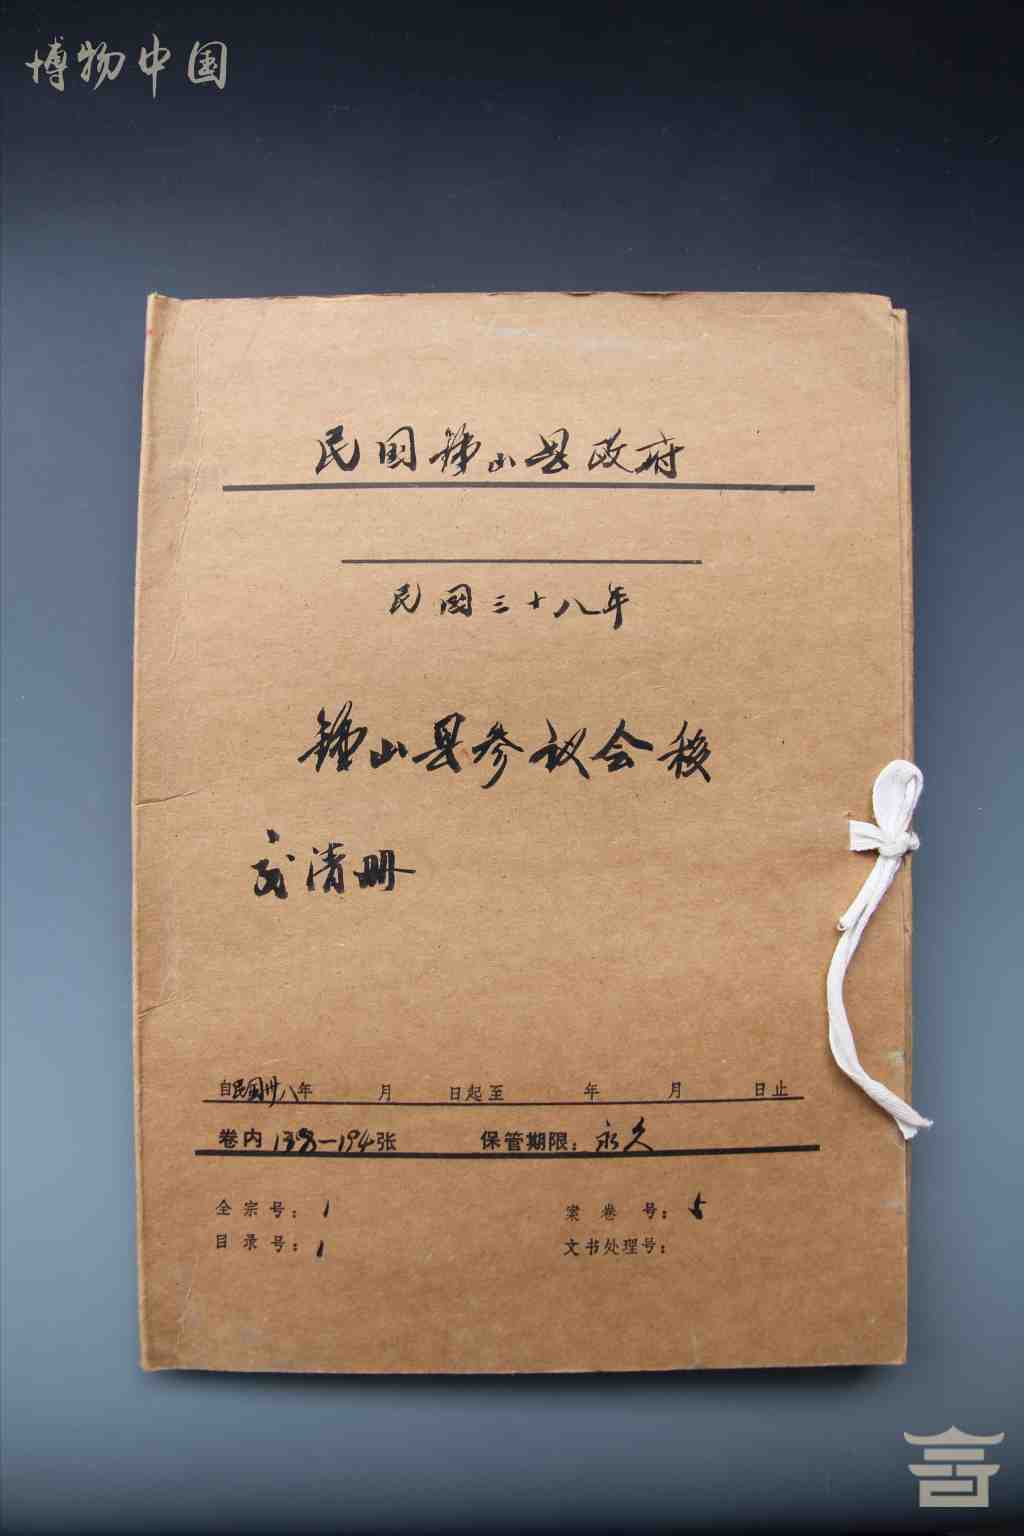 博物中国
民国钟山县政府
民國三十八年
钟山县参议会移
交清册
自民国卅八年 月 日起至 年 月 日止
卷内 —194张 保管期限：永久
全宗号：1 案卷号：5
目录号：1 文书处理号：